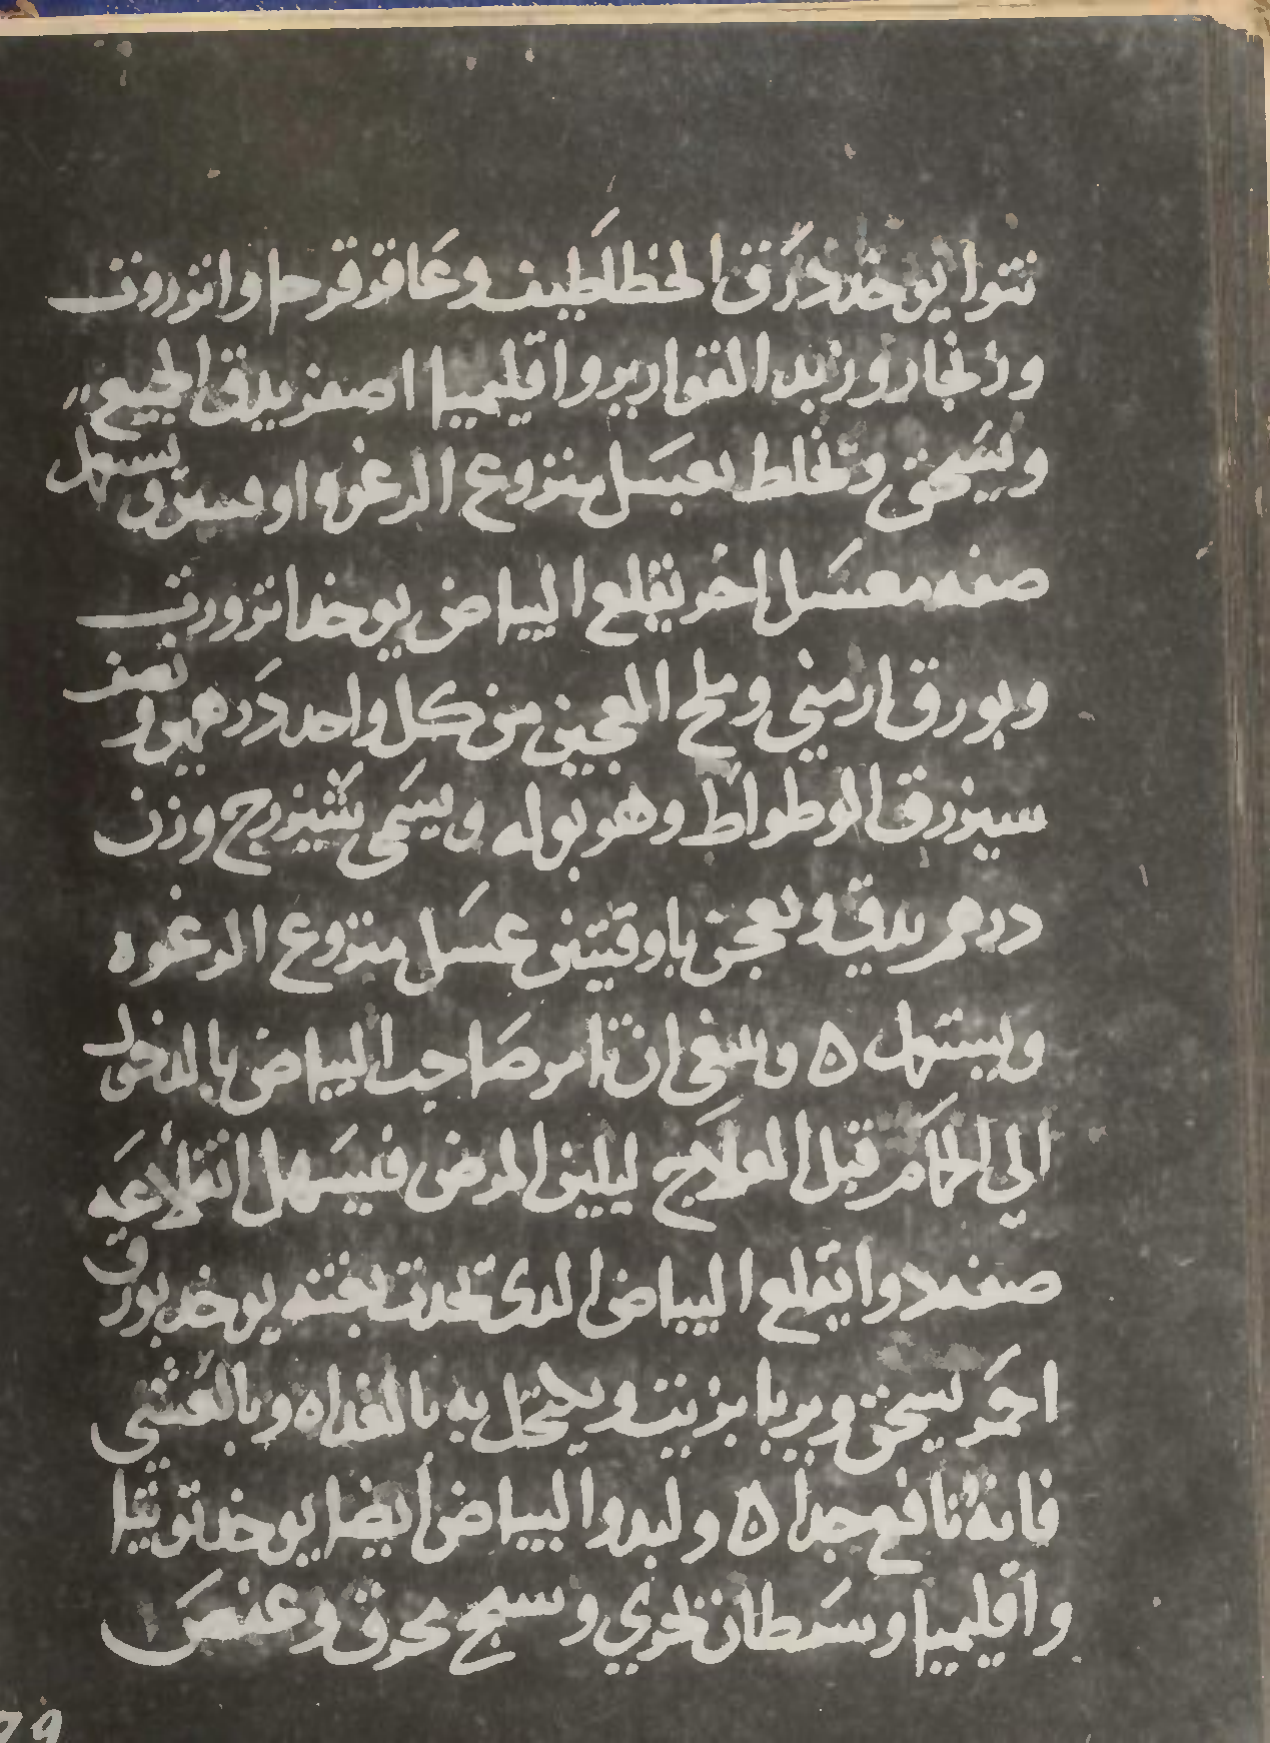 نتوا يوخد درق الخطاطيف وعاقرقرحا وانزروت
وزنجار وزبد القوارير واقليميا اصفر يدق الجميع
ويسحق وتخلط بعسل منزوع الرغوه او
صفه معسل اخر يقلع البياض يوخد انزروت
وبورق ارمني وملح العجين من كل واحد درهمين و نصف
زرق الوطواط وهو بوله ويسمى بشيزرج وزن
درهم يدق ويعجن باوقيتين عسل منزوع الرغوه
ويستهل ه وينبغي ان تامر صاحب البياض بالدخول
الي الحمام قبل العلاج ليلين المرض فيسهل انقلاعه
صفه دوا يقلع البياض الدى تحدث بغته يوخد بورق
احمر يسحق ويربا بزيت ويكتحل به بالغداه وبالعشي
فانه نافع جدا ه ولبدوا البياض ايضا يوخد توتيا
واقليميا وسرطان بحري وسبج محرق وعفص
79